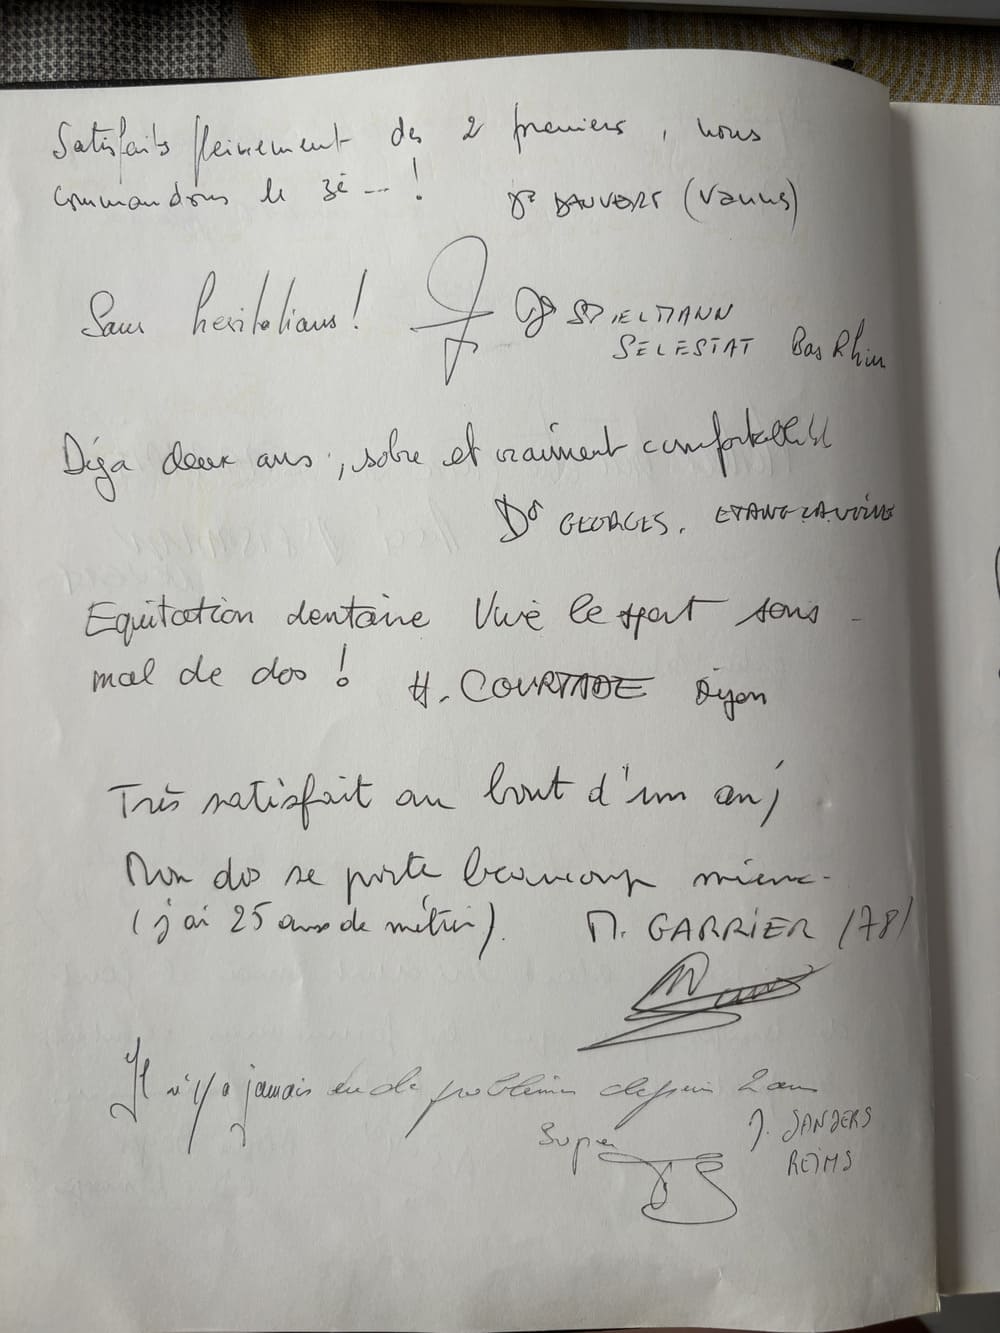 Satisfaits pleinement des 2 premiers, nous
commandons le 3è ---! Dr DAUVERS (Vannes)
Sans hésitations! Dr SPIELMANN
SELESTAT Bas Rhin
Déja deux ans, sobre et vraiment confortable!
Dr GEORGES. ETANG
Equitation dentaire Vive le sport sans
mal de dos! H. COURTADE Dijon
Très satisfait au bout d'un an;
Mon dos se porte beaucoup mieux.
(j'ai 25 ans de métier). M. GARRIER (78)
Il n'y a jamais eu de problèmes depuis 2 ans
Super J. SANDERS
REIMS